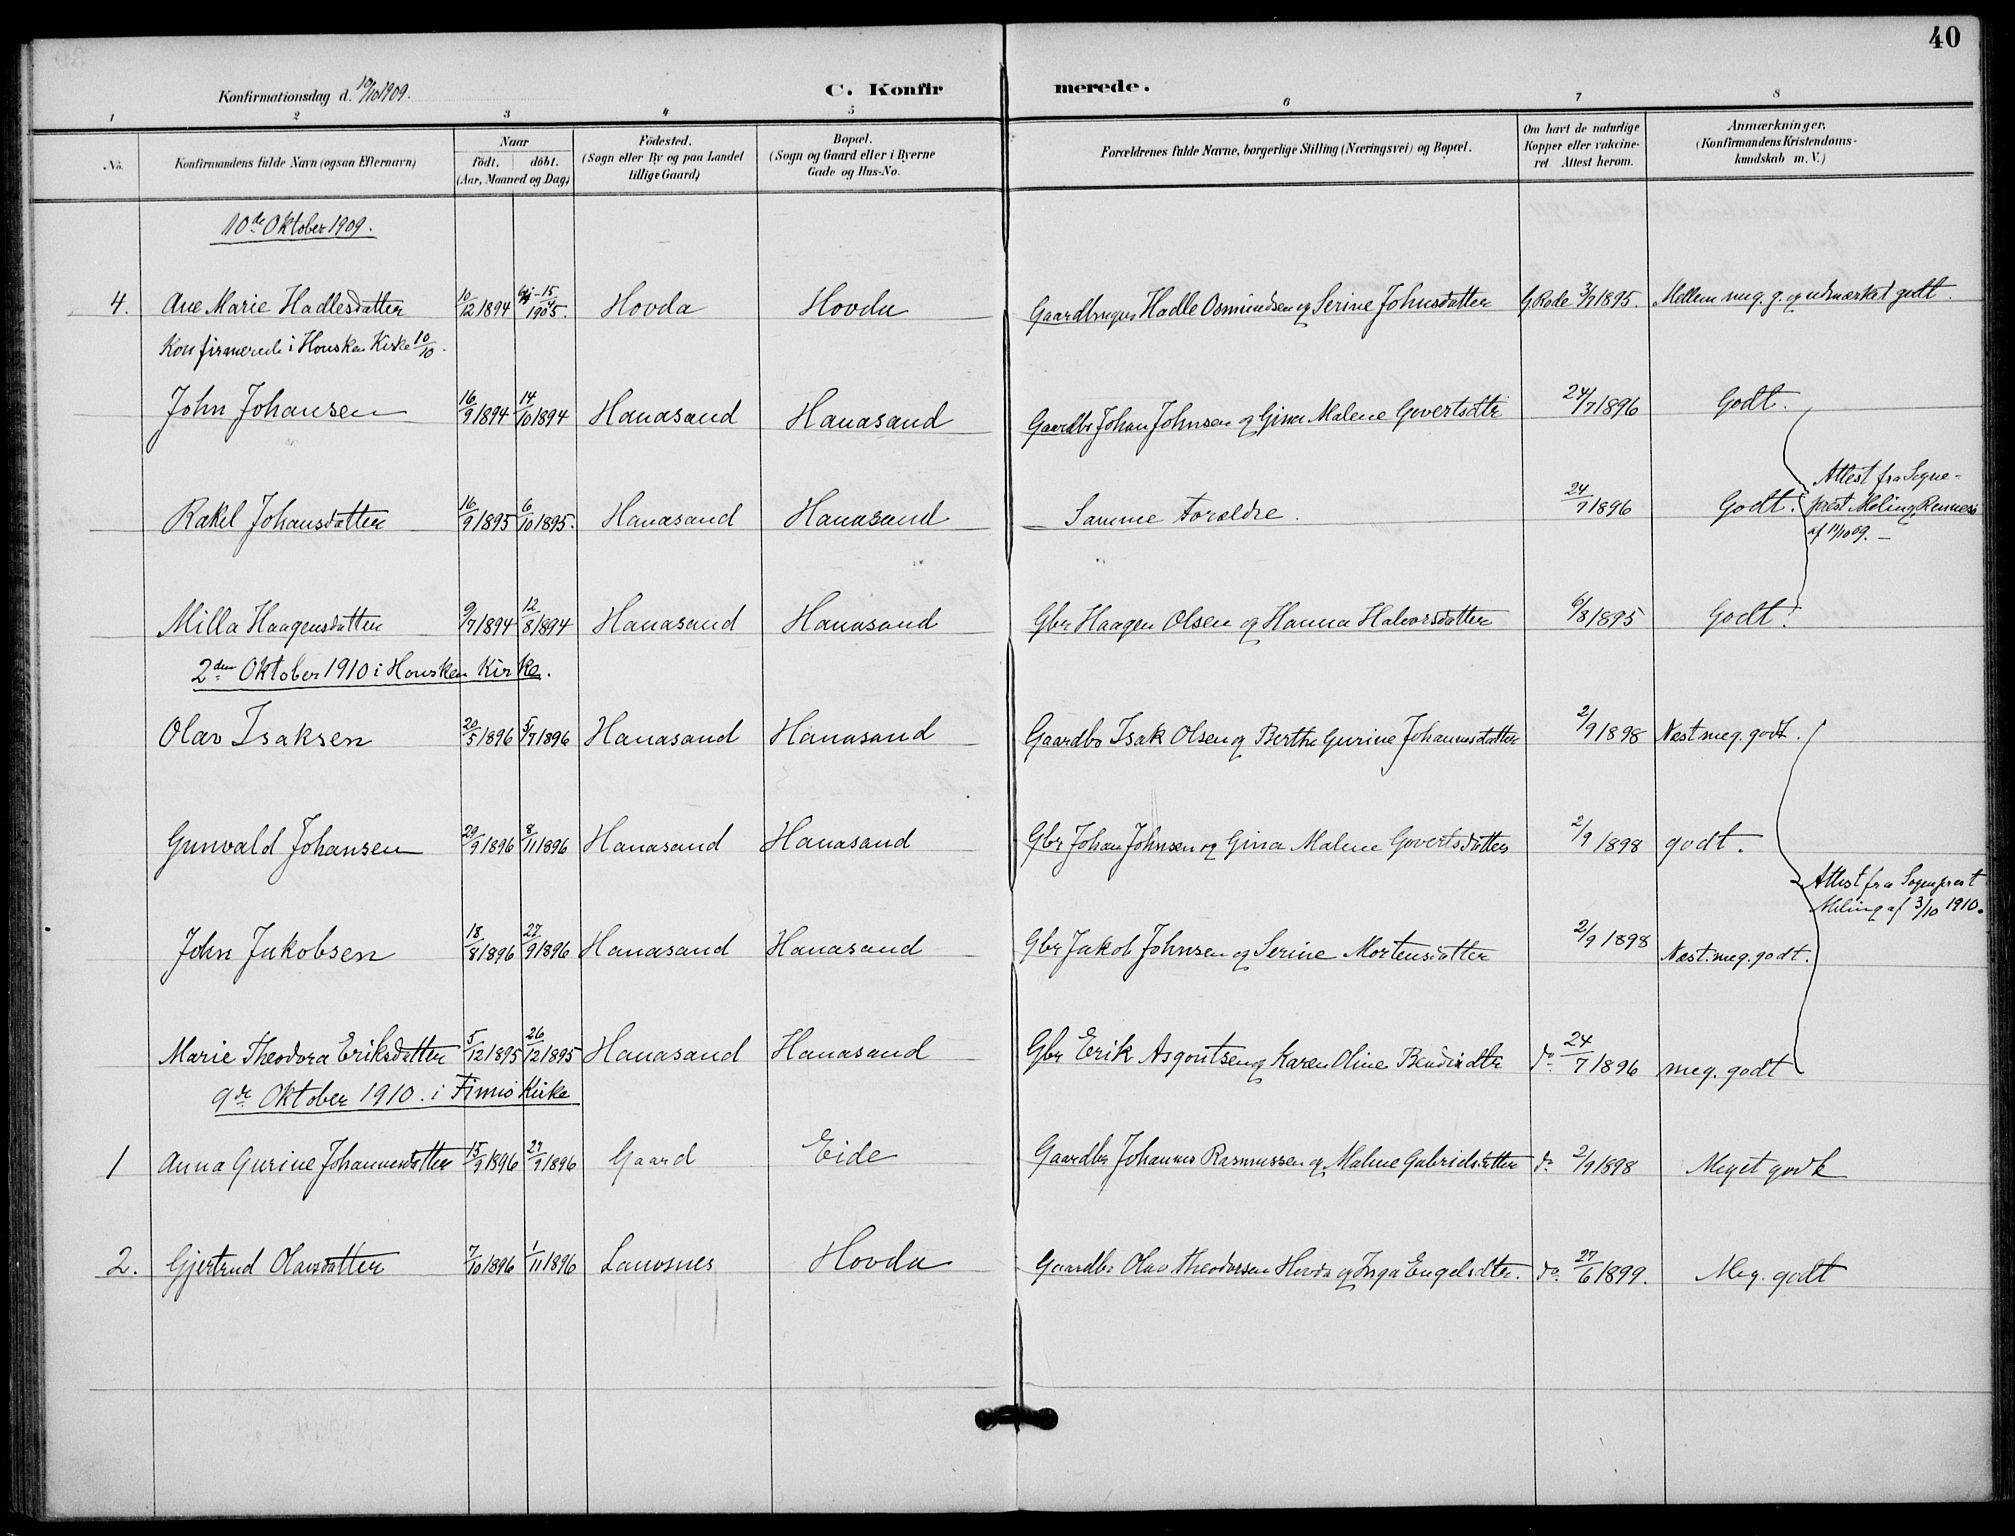 40
Konfirmationsdag d. 10/10 1909.
C. Konfirmerede.
1 2 3 4 5 6 7 8
No.
Konfirmandens fulde Navn (ogsaa Efternavn)
Naar
födt. döbt.
(Aar, Maaned og Dag)
Födested.
(Sogn eller By og paa Landet
tillige Gaard)
Bopæl.
(Sogn og Gaard eller i Byerne
Gade og Hus-No.
Forældrenes fulde Navne, borgerlige Stilling (Næringsvei) og Bopæl.
Om havt de naturlige
Kopper eller vakcine-
ret Attest herom.
Anmærkninger,
(Konfirmandens Kristendoms-
kundskab m. V.)
10de Oktober 1909.
4. Ane Marie Hadlesdatter 10/12 1894 15/4 1905. Hovda Hovda Gaardbruger Hadle Osmundsen og Serine Johnsdatter G. Rade 3/7 1895. Mellem meg. g. og udmærket godt.
Konfirmerede i Hausken Kirke 10/10.
John Johansen 16/9 1894 14/10 1894 Hanasand Hanasand Gaardbr Johan Johnsen og Gina Malene Govertsdtr 24/7 1896 Godt.
Rakel Johansdatter 16/9 1895 6/10 1895. Hanasand Hanasand Samme Forældre. 24/7 1896 Godt.
Attest fra Sogne-
prest Meling, Rennesø
af 11/10 09.
Milla Haagensdatter 9/7 1894 12/8 1894 Hanasand Hanasand Gbr Haagen Olsen og Hanna Halvorsdatter 6/8 1895 Godt.
2den Oktober 1910 i Hausken Kirke.
Olav Isaksen 20/5 1896 5/7 1896 Hanasand Hanasand Gaardbr Isak Olsen og Berthe Gurine Johannesdatter 2/9 1898 Næst meg. godt.
Gunvald Johansen 29/9 1896 8/11 1896 Hanasand Hanasand Gbr Johan Johnsen og Gina Malene Govertsdatter 2/9 1898 godt.
Attest fra Sogneprest
Meling af 3/10 1910.
John Jakobsen 18/8 1896 27/9 1896 Hanasand Hanasand Gbr Jakob Johnsen og Serine Mortensdatter 2/9 1898 Næst. meg. godt.
Marie Theodora Eriksdatter 5/12 1895 26/12 1895 Hanasand Hanasand Gbr Erik Asgoutsen og Karen Oline dtr do. 24/7 1896 meg. godt
9de Oktober 1910. i Finnö Kirke
1 Anna Gurine Johannesdatter 15/9 1896 27/9 1896 Gaard Eide Gaardbr Johannes Rasmussen og Malene Gabrielsdatter do. 2/9 1898 Meget godt
2. Gjertrud Olavsdatter 7/10 1896 1/11 1896 Lauvsnes Hovda Gaardbr Olav Theodorsen Hovda og Inga Engelsdtr. do. 27/6 1899. Meg. godt